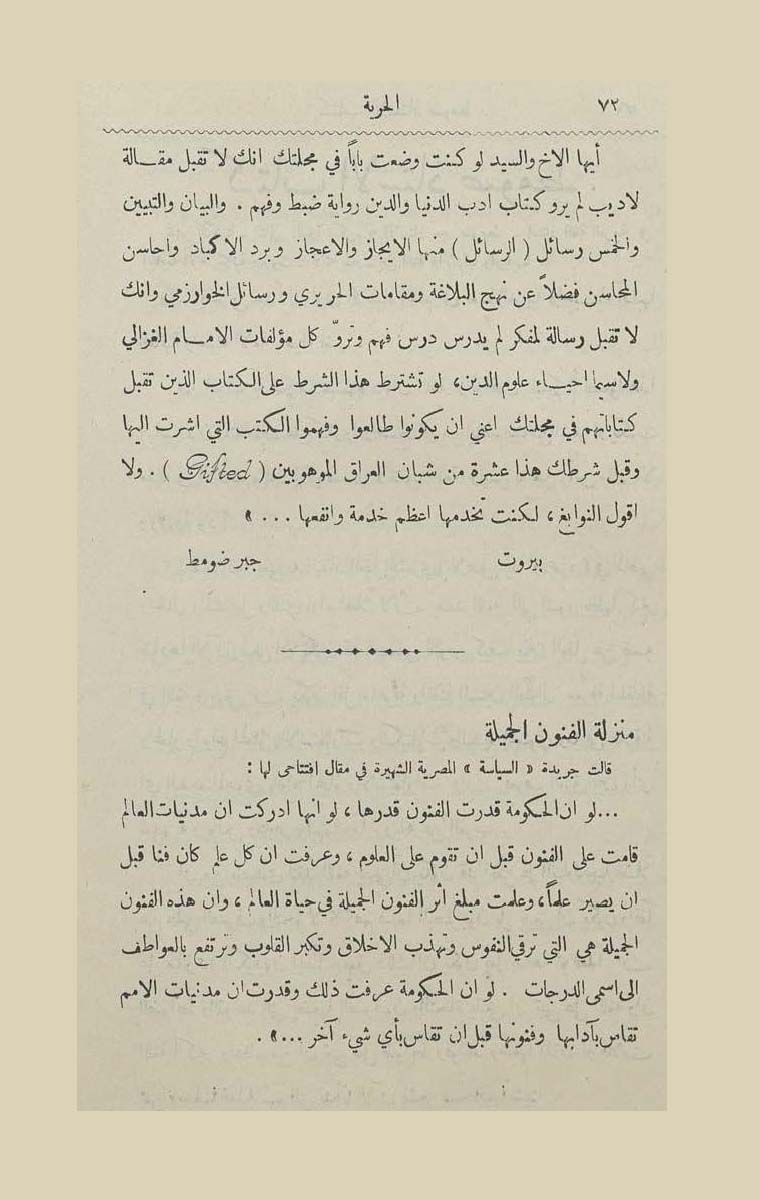 ٧٢
الحرية
أيها الاخ والسيد لو كنت وضعت باباً في مجلتك انك لا تقبل مقـالة
لاديب لم يرو كتاب ادب الدنيا والدين رواية ضبط وفهم . والبيان والتبيين
والخمس رسائل ( الرسائل ) منها الايجاز والاعجاز وبرد الاكباد واحاسن
المحاسن فضلاً عن نهج البلاغة ومقامات الحريري ورسائل الخوارزمي وانك
لا تقبل رسالة لمفكر لم يدرس درس فهم وتروّ كل مؤلفات الامـام الغزالي
ولاسيما احيـاء علوم الدين، لو تشترط هذا الشرط على الكتاب الذين تقبل
كتاباتهم في مجلتك اعني ان يكونوا طالعوا وفهموا الكتب التي اشرت اليها
وقبل شرطك هذا عشرة من شبان العراق الموهوبين ( Gifted ) . ولا
اقول النوابغ، لكنت تخدمها اعظم خدمة وانفعها ... »
بيروت جبر ضومط
منزلة الفنون الجميلة
قالت جريدة « السياسة » المصرية الشهيرة في مقال افتتاحى لها :
...لو ان الحكومة قدرت الفنون قدرها ، لو انها ادركت ان مدنيات العالم
قامت على الفنون قبل ان تقوم على العلوم ، وعرفت ان كل علم كان فنا قبل
ان يصير علماً، وعلمت مبلغ أثر الفنون الجميلة في حياة العالم ، وان هذه الفنون
الجميلة هي التي ترقي النفوس وتهذب الاخلاق وتكبر القلوب وترتفع بالعواطف
الى اسمى الدرجات . لو ان الحكومة عرفت ذلك وقدرت ان مدنيات الامم
تقاس بآدابها وفنونها قبل ان تقاس بأي شيء آخر ...» .